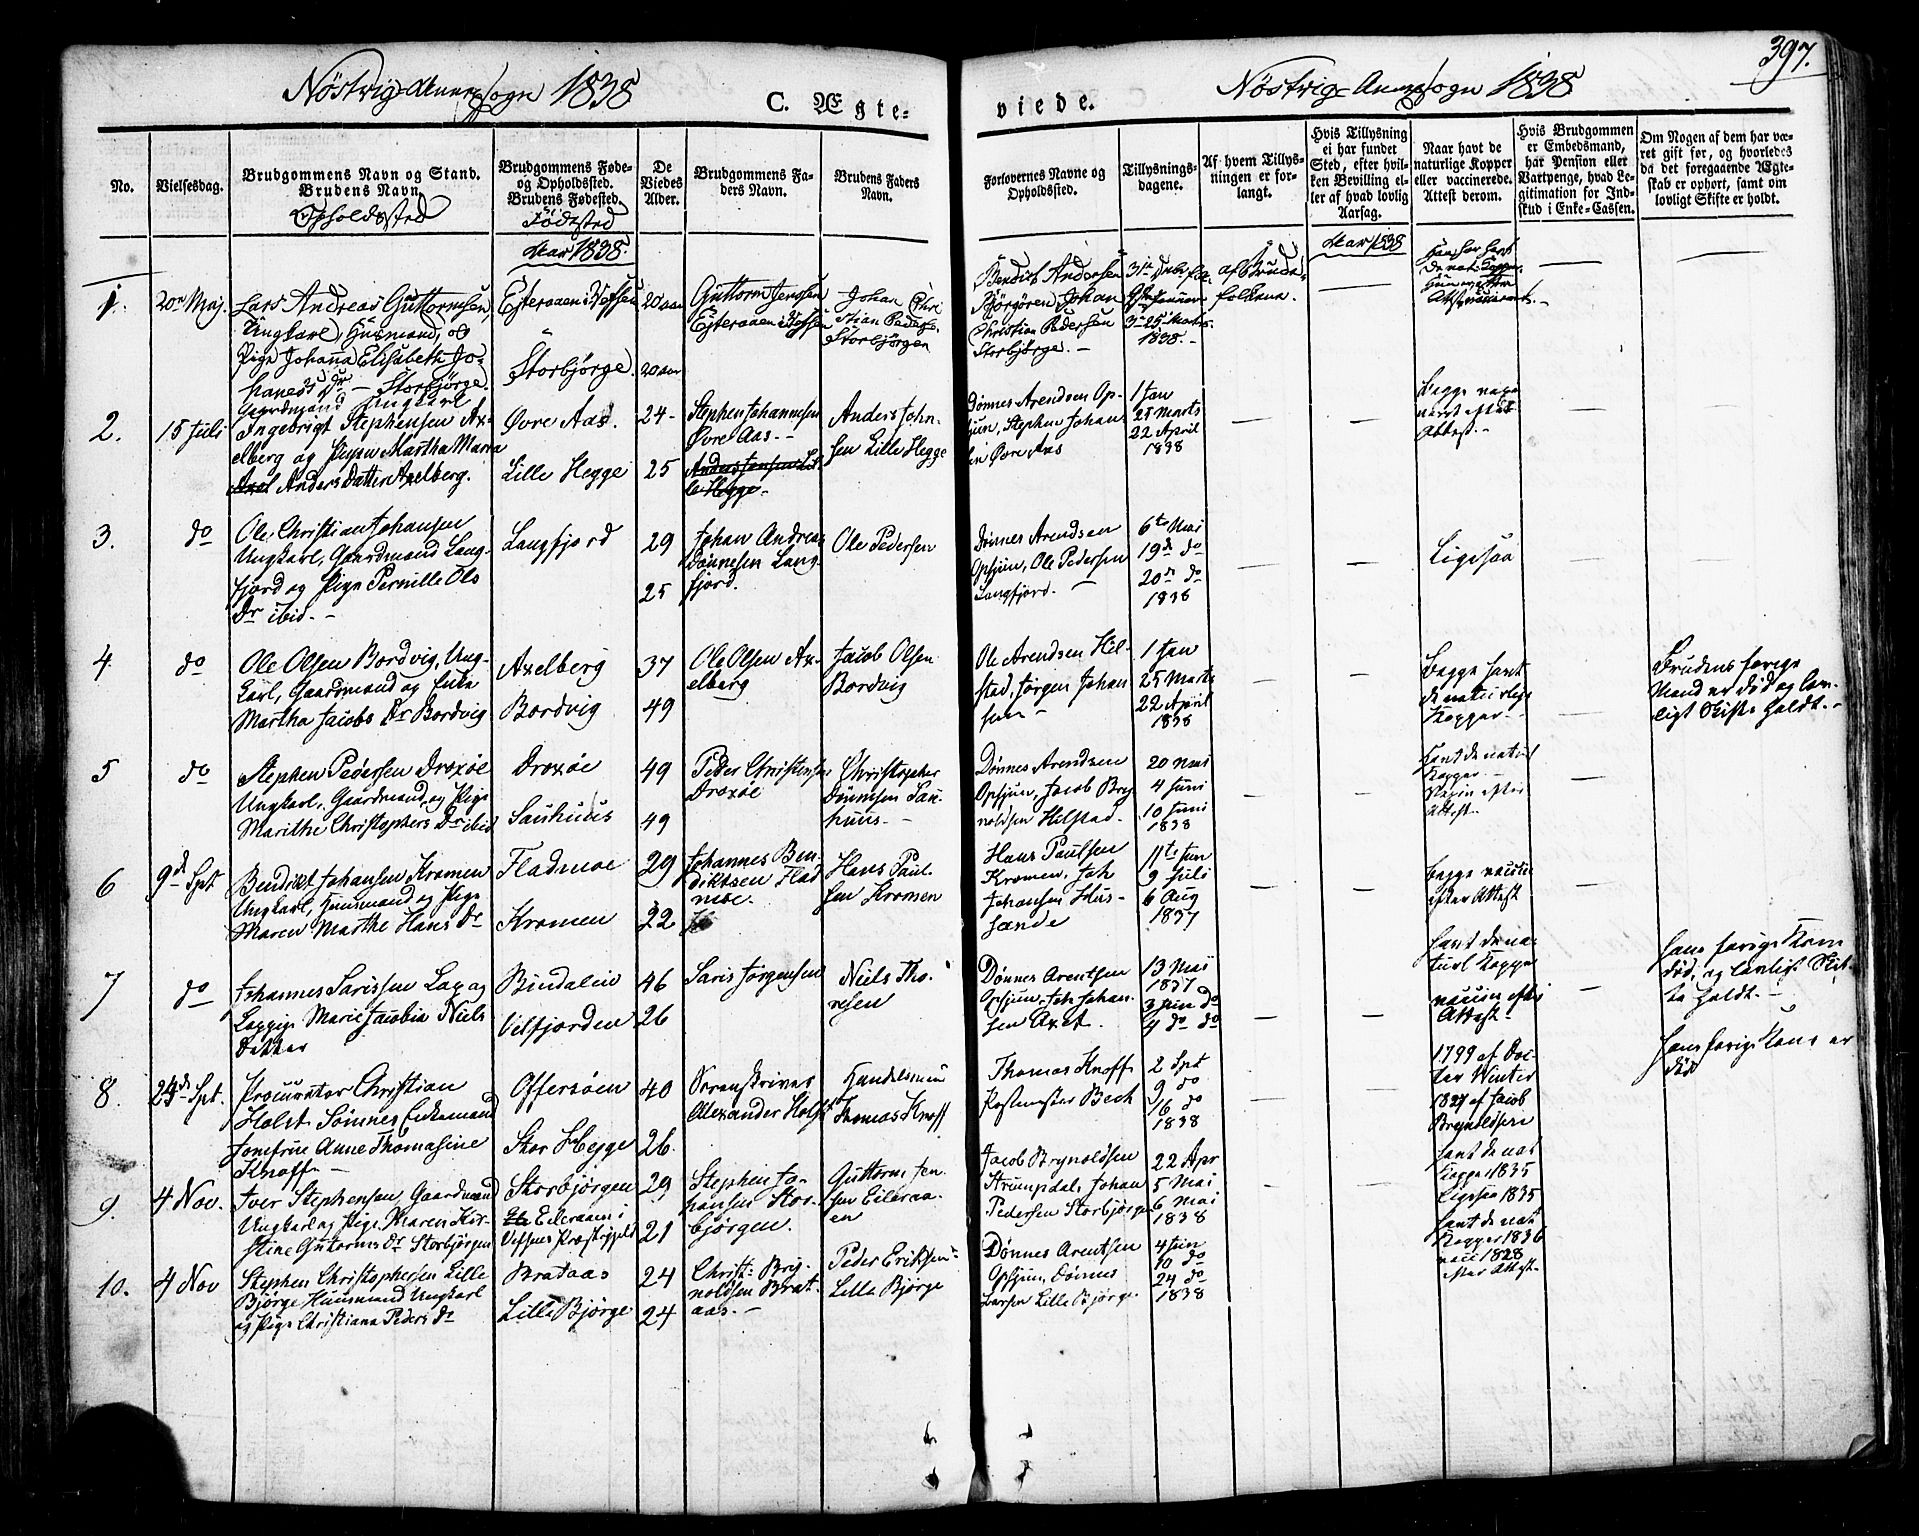 Nöstvig Annexsogn 1838
C. Ægte-
viede.
Nöstvig Annexsogn 1838
397.
No.
Vielsesdag.
Brudgommens Navn og Stand.
Brudens Navn.
Opholdssted
Brudgommens Føde-
og Opholdssted.
Brudens Fødested.
Födested
De
Viedes
Alder.
Brudgommens Fa-
ders Navn.
Brudens Faders
Navn.
Forlovernes Navne og
Opholdssted.
Tillysnings-
dagene.
Af hvem Tillys-
ningen er for-
langt.
Hvis Tillysning
ei har fundet
Sted, efter hvil-
ken Bevilling el-
ler af hvad lovlig
Aarsag.
Naar havt de
naturlige Kopper
eller vaccinerede.
Attest derom.
Hvis Brudgommen
er Embedsmand,
har Pension eller
Vartpenge, hvad Le-
gitimation for Ind-
skud i Enke-Cassen.
Om Nogen af dem har væ-
ret gift før, og hvorledes
da det foregaaende Ægte-
skab er ophørt, samt om
lovligt Skifte er holdt.
Aar 1838.
Aar 1838
1.
20de Maj.
Lars Andreas Guttormsen,
Ungkarl, Huusmand, og
Pige Johanna Elisabeth Jo-
hanes Dr – Storbjørge.
Storbjørge.
20 aar
20 aar
Guttorm Jensen
Johan Chri
stian Peders.
Storbjörgen
Bendix Andersen
Johan
Christian Pedersen
Storbjørge. –
1838. –
2.
15 Juli
Gaardmand Ungkarl
Ingebrigt Stephensen Ax-
elberg og Pigen Martha Maria
Axel Anders Datter Axelberg.
Øvre Aas.
Lille Hegge
24-
25
Stephen Johannesen
Øvre Aas. –
Anders Jensen Lil-
le Hegge –
Anders John-
sen Lille Hegge
Dønnes Arendsen Op-
sjøn, Stephen Johan
sen Øvre Aas
1 Jan
25 Marts
22 April
1838
Begge vaxi
neret efter
Attest. –
3.
do
Ole Christian Johansen
Ungkarl, Gaardmand Lang-
fjord og Pige Pernille Ols
Dr ibid. –
Langfjord
29
25
Johan Andreas
Dönnesen Lang
fjord.
Ole Pedersen
Dönnes Arendsen
Opsjøn, Ole Pedersen
Langfjord. –
6te Mai
19de do
20de do
1838
Ligesaa
4
do
Ole Olsen Bordvig, Ung-
karl, Gaardmand og Enke
Martha Jacobs Dr Bordvig
Axelberg
Bordvig
37
49
Ole Olsen Ax-
elberg
Jacob Olsen
Bordvig
Ole Arendsen Hil-
stad, Jørgen Johan
sen –
1 Jan
25 Marts
22 April
1838
Begge havt
de naturlige
Kopper. –
Brudens forige
Mand er död og lov-
ligt Skifte holdt. –
5
do
Stephen Pedersen Droxøe
Ungkarl, Gaardmand og Pige
Marithe Christophers Dr ibid
Droxøe
Sauhuus
49
49
Peder Christensen
Droxøe
Christopher
Dönnesen Sau-
huus. –
Dønnes Arendsen
Opsjøn, Jacob Bry
noldsen Hilstad –
20 Mai
4 Juni
10 Juni
1838
havt de natur
Kopper –
efter
Attest. –
6
9de Spt
Bendikt Johansen Kromen
Ungkarl, Huusmand og Pige
Maren Marthe Hans Dr
Fladmoe
Kromen
29
22
Johannes Ben-
diktsen Flad
moe.
Hans Paul-
sen Kromen
Hans Paulsen
Kromen, Joh
Johansen Hus-
11te Jun
9 Juli
6 Aug
1837
begge vaccin
efter Attest
7
do
Johannes Sarissen Lap og
Lappige Marie Jacobia Niels
Datter
Bindalen
Velfjorden
46
26
Saris Jørgensen
Niels Tho-
resen
Dønnes Arentsen
Opsjøn, Joh Johan-
sen Axel.
13 Mai
1837
3 Jun do
4 do do
havt de na-
turl Kopper
vaccin efter
Attest –
hans forige Kone
död, og lovligt Skif-
te holdt. –
8
23de Spt.
Procurator Christian
Holst Sömnes Enkemand
Jomfrue Anne Thomasine
Knoff –
Offersøen
Stor Hegge
40
26.
Sorenskriver
Alexander Holst
Handelsman
Thomas Knoff
Thomas Knoff
Postmester Bech
2 Spt
9 do
16 do
1838
1799 af Doc-
tor Winter
1827 af Jacob
Brynoldsen
hans forige Kone er
död
9.
4 Nov.
Iver Stephensen, Gaardmand
Ungkarl og Pige Maren Kir-
stine Gutorms Dr Storbjørgen
Storbjørgen
Eileraaen i
Vefsens Præstegjeld
29
21
Stephen Jo-
hansen Stor-
bjørgen.
Guttorm Jen
sen Eileraa-
en
Jacob Brynoldsen
Strumpdal, Johan
Pedersen Storbjörgen
22 Apr
5 Mai
6 Mai
1838
havt de nat
Kopper 1835
Ligesaa 1835
10.
4 Nov
Stephen Christophersen Lille
Bjørge Huusmand Ungkarl
og Pige Christiana Peders Dr
Brataas
Lille Bjørge
24
24
Christ: Bry-
noldsen Brat-
aas. –
Peder Eriksen
Lille Bjørge
Dønnes Arentsen
Opsjøn, Dönnes
Larsen Lille Bjørge
4 Jun
10 do
24 do
1838
havt de nat
Kopper 1836
vacc 1828
efter Attest.